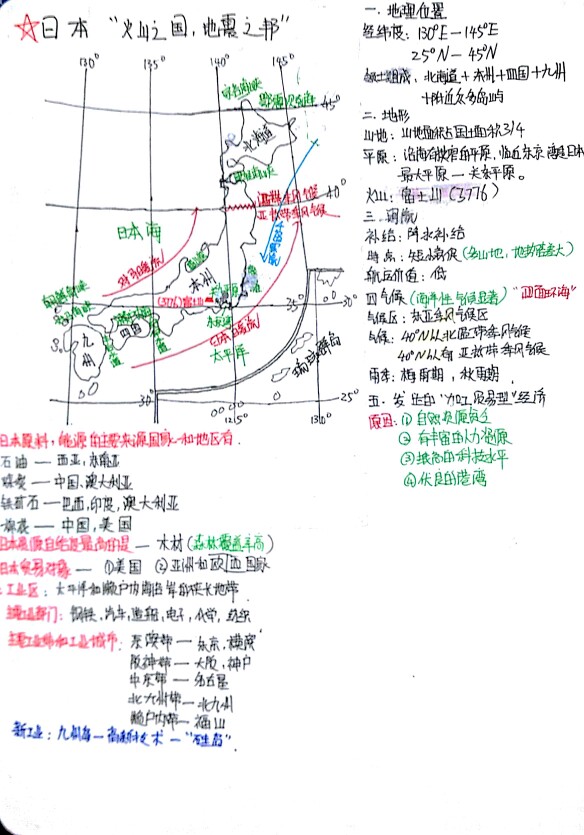 ☆日本 "火山之国,地震之邦"
130° 135° 140° 145°
45°
北海道
40°
日本海
本州
四国
九州
太平洋
日本暖流
35°
30°
琉球群岛
30°
25°
125° 130°
日本原料,能源的主要来源国家和地区有.
石油 — 西亚,东南亚
煤炭 — 中国,澳大利亚
铁矿石 — 巴西,印度,澳大利亚
棉花 — 中国,美国
日本资源自给率最高的是 — 木材(森林覆盖率高)
日本贸易对象 — ①美国 ②亚洲和欧洲国家
工业区: 太平洋和濑户内海沿岸的狭长地带.
主要工业部门: 钢铁,汽车,造船,电子,化学,纺织
主要工业带和工业城市: 东京带 — 东京,横滨
阪神带 — 大阪,神户
中京带 — 名古屋
北九州带 — 北九州
濑户内带 — 福山
新工业: 九州岛 — 高新科技术 — "硅岛".
一.地理位置
经纬度: 130°E — 145°E
25°N — 45°N
领土组成: 北海道+本州+四国+九州
+附近众多岛屿
二.地形
山地: 山地面积占国土面积3/4
平原: 沿海有狭窄的平原,临近东京湾是日本
最大平原 — 关东平原。
火山: 富士山(3776)
三.河流
补给: 降水补给
特点: 短小湍促(多山地,地势落差大)
航运价值: 低
四气候(海洋性气候显著) "四面环海"
气候区: 东亚季风气候区
气候: 40°N以北温带季风气候
40°N以南亚热带季风气候
雨季: 梅雨期,秋雨期.
五.发达的"加工贸易型"经济
原因: ①自然资源贫乏
②有丰富的人力资源
③较高的科技水平
④优良的港湾